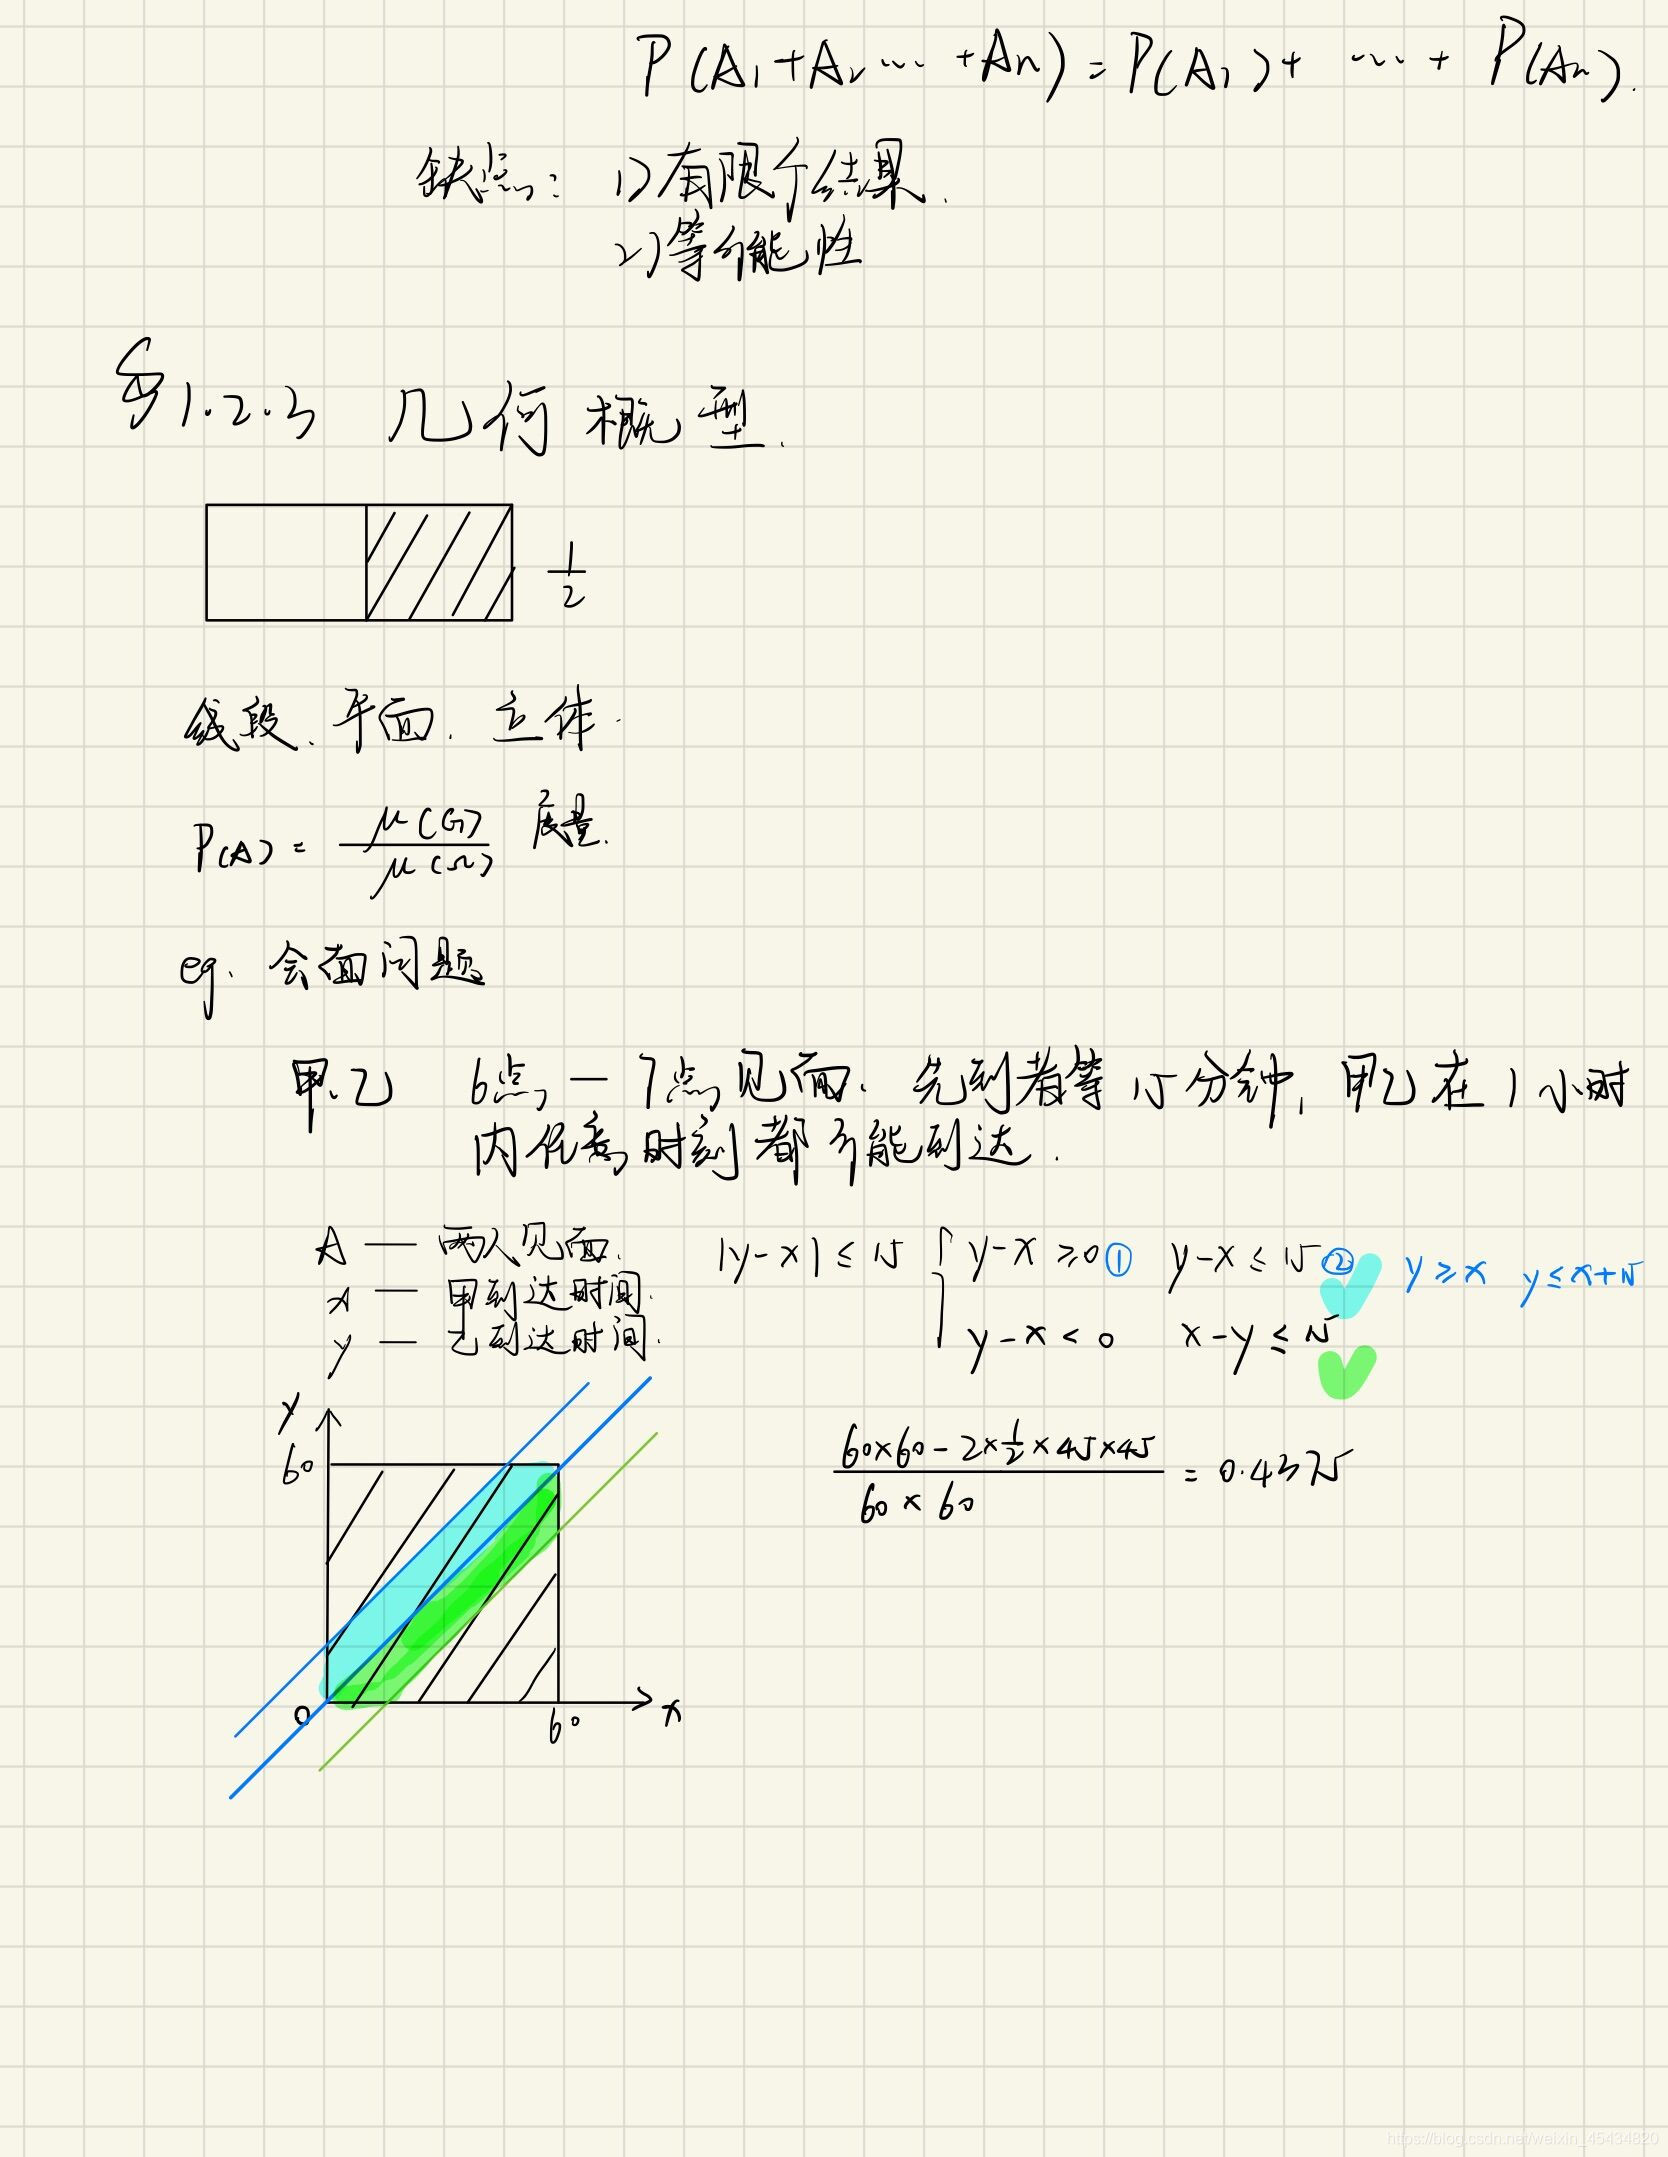 P(A₁+A₂…+Aₙ)=P(A₁)+ … + P(Aₙ).
缺点: 1)有限个结果.
2)等可能性
§1.2.3 几何概型.
1/2
线段、平面、立体.
P(A)= μ(G)/μ(Ω) 度量.
eg. 会面问题
甲.乙 6点—7点见面. 先到者等15分钟, 甲乙在1小时
内任意时刻都可能到达.
A — 两人见面. |y-x|≤15 { y-x≥0① y-x≤15② y≥x y≤x+15
x — 甲到达时间.
y — 乙到达时间. y-x<0 x-y≤15
y
60
(60×60-2×1/2×45×45)/(60×60) = 0.4375
0 60 x
https://blog.csdn.net/weixin_45434820